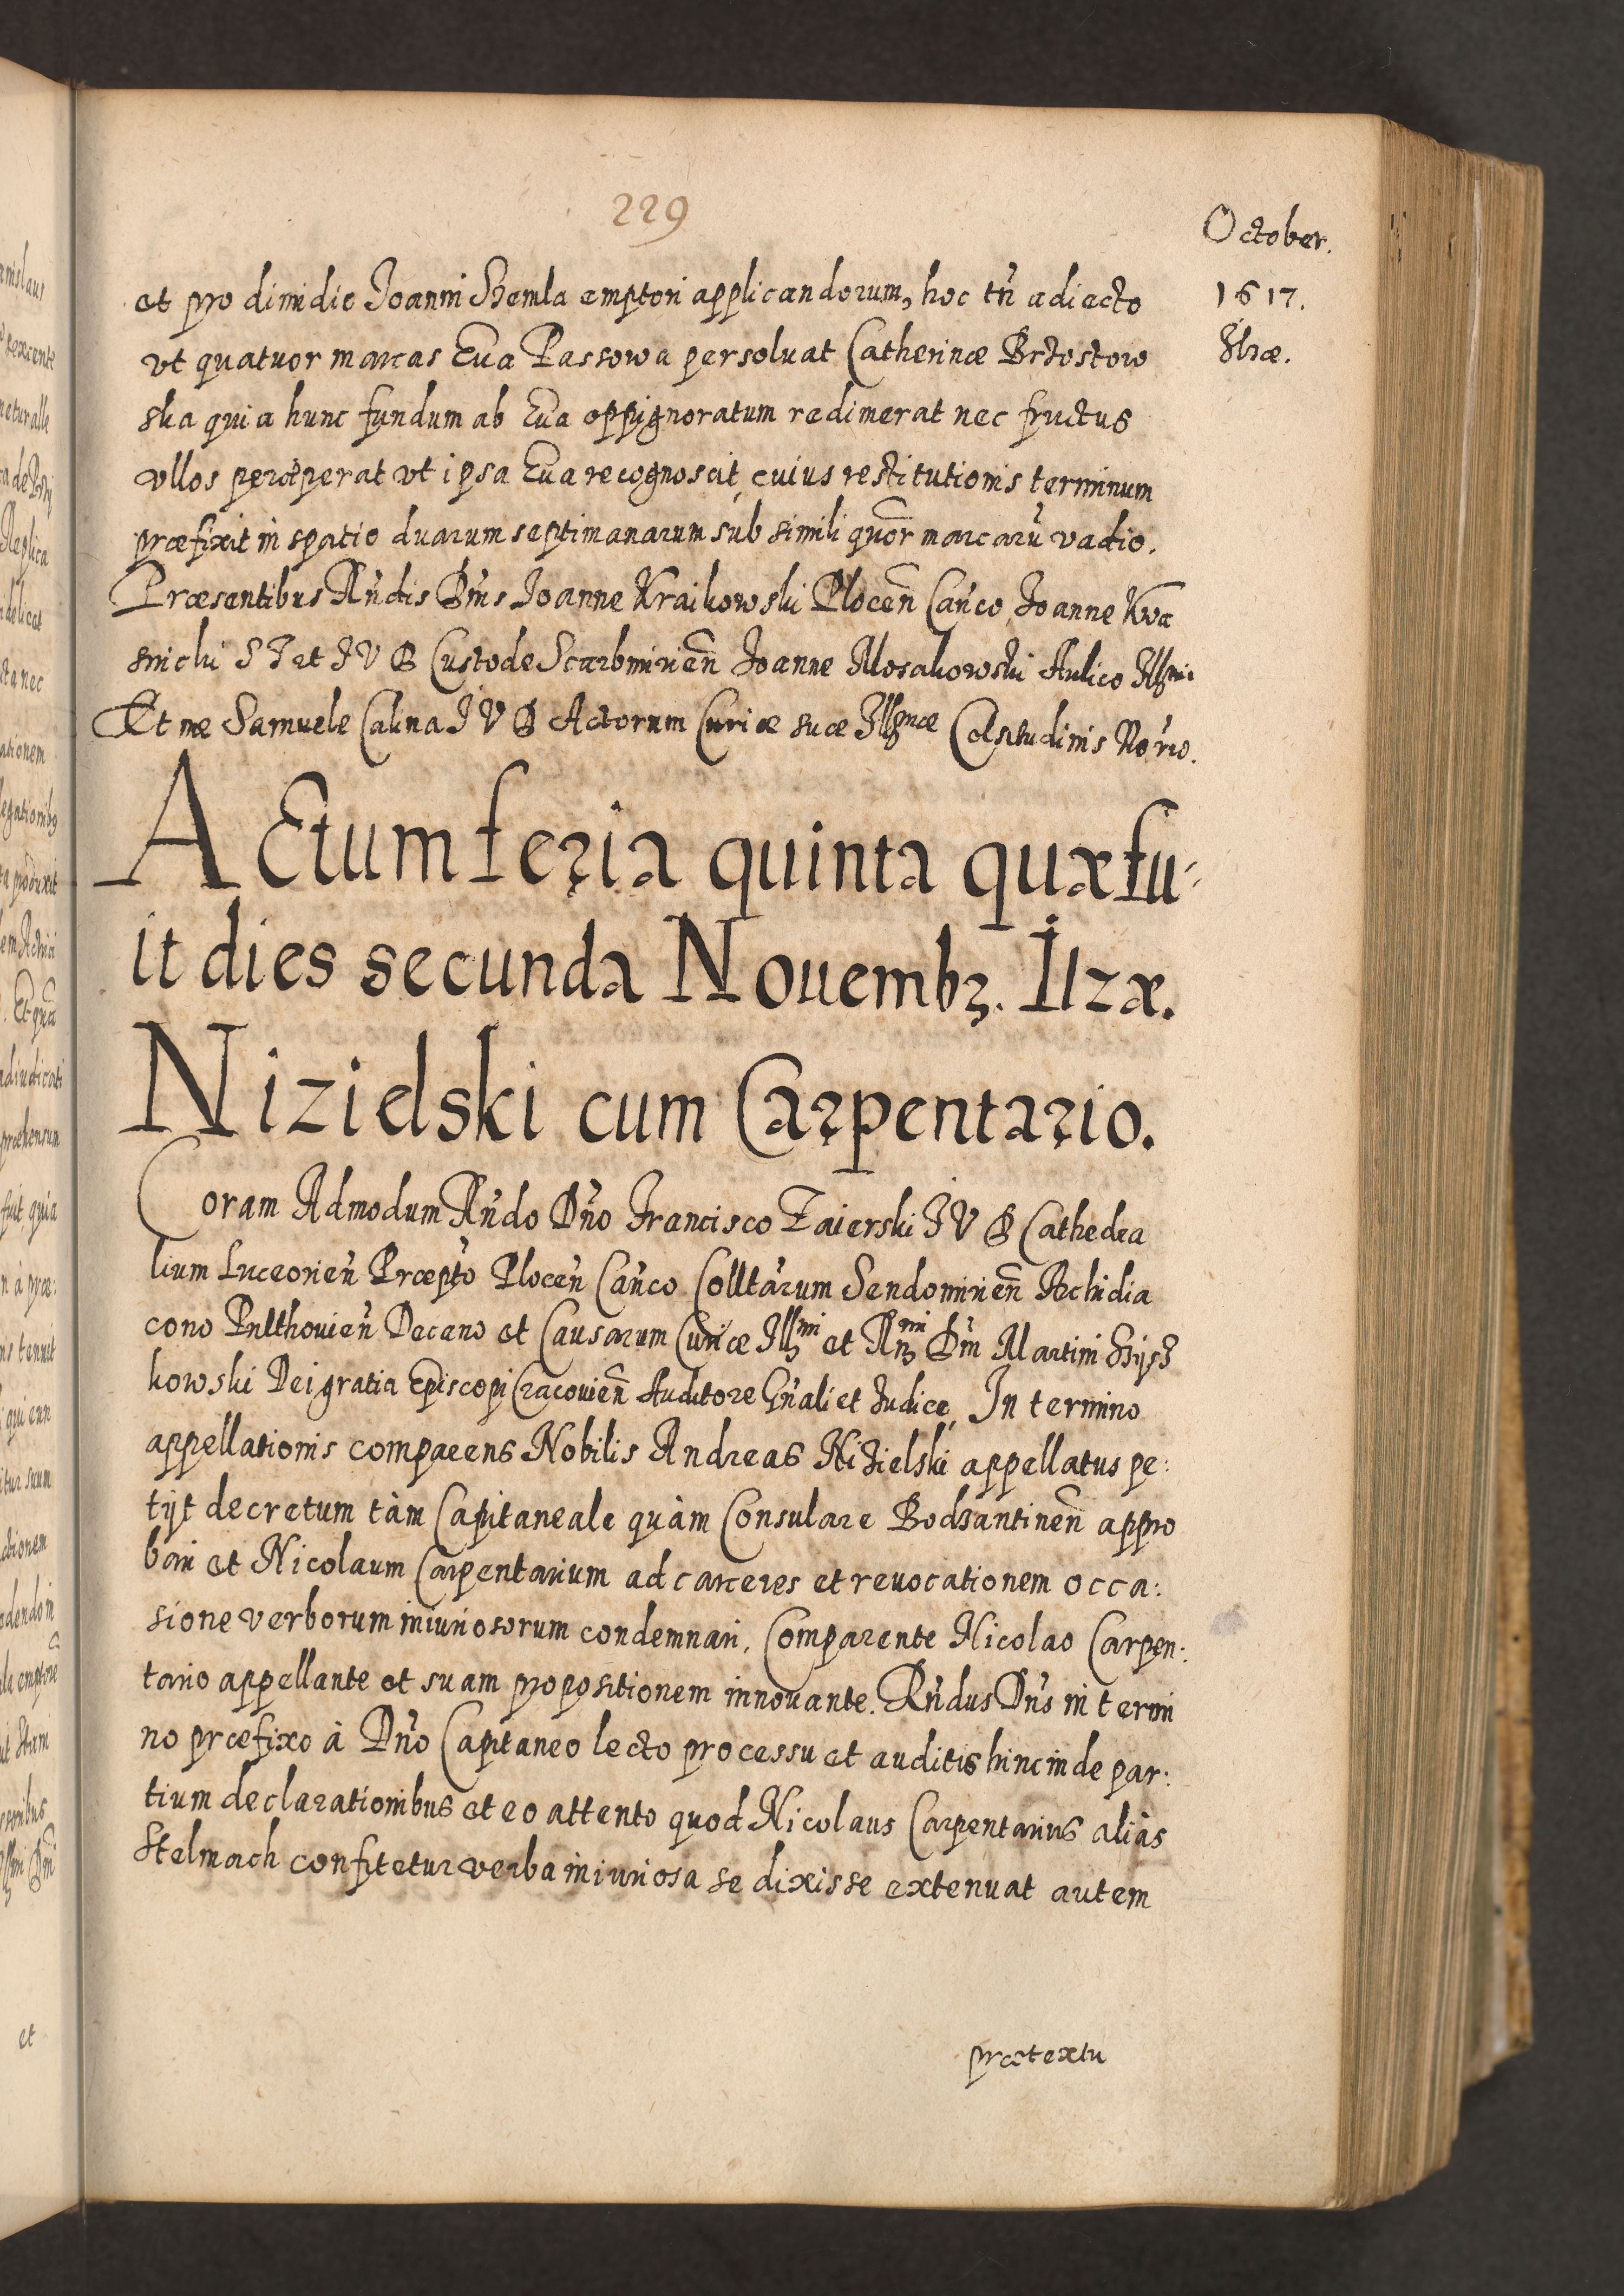 229
October.
1617.
Ilzæ.
et pro dimidie Joanni Szemla emptori applicandorum, hoc tñ adiecto
vt quatuor marcas Eua Passowa persoluat Catherinæ Brzostow
ska quia hunc fundum ab Eua oppignoratum redimerat nec fructus
vllos perceperat vt ipsa Eua recognoscit, cuius restitutionis terminum
præfixit in spatio duarum septimanarum sub simili quõr marcarũ vadio.
Præsentibus Rñdis Dm̃s Joanne Kraikowski Plocen̄ Can̄co, Joanne Kwa
snicki S T et I V D Custode Scarbmirien̄ Joanne Mosakowski Aulico Illmi
Et me Samuele Calina I V D Actorum Curiæ suæ Illmæ Celsitudinis No'rio.
ACtum feria quinta quæ fu-
it dies secunda Nouembꝫ. Ilzæ.
Nizielski cum Carpentario.
Coram Admodum Rñdo Dño Francisco Zaierski I V D Cathedra
lium Luceorien̄ Præpto Plocen̄ Can̄co Colltarum Sendomirien̄ Archidia
cono Pulthouien̄ Decano et Causarum Curiæ Illmi et Rmi Dn̄i Martini Szysz
kowski Dei gratia Episcopi Cracouien̄ Auditore Gñali et Judice, In termino
appellationis comparens Nobilis Andreas Nizielski appellatus pe:
tijt decretum tàm Capitaneale quàm Consulare Bodzantinen̄ appro
bari et Nicolaum Carpentarium ad carceres et reuocationem occa:
sione verborum iniuriosorum condemnari, Comparente Nicolao Carpen:
tario appellante et suam propositionem innouante. Rñdus Dñs in termi
no præfixo à Dño Capitaneo lecto processu et auditis hincinde par:
tium declarationibus et eo attento quod Nicolaus Carpentarius aliàs
Stelmach confitetur verba iniuriosa se dixisse extenuat autem
prætextu